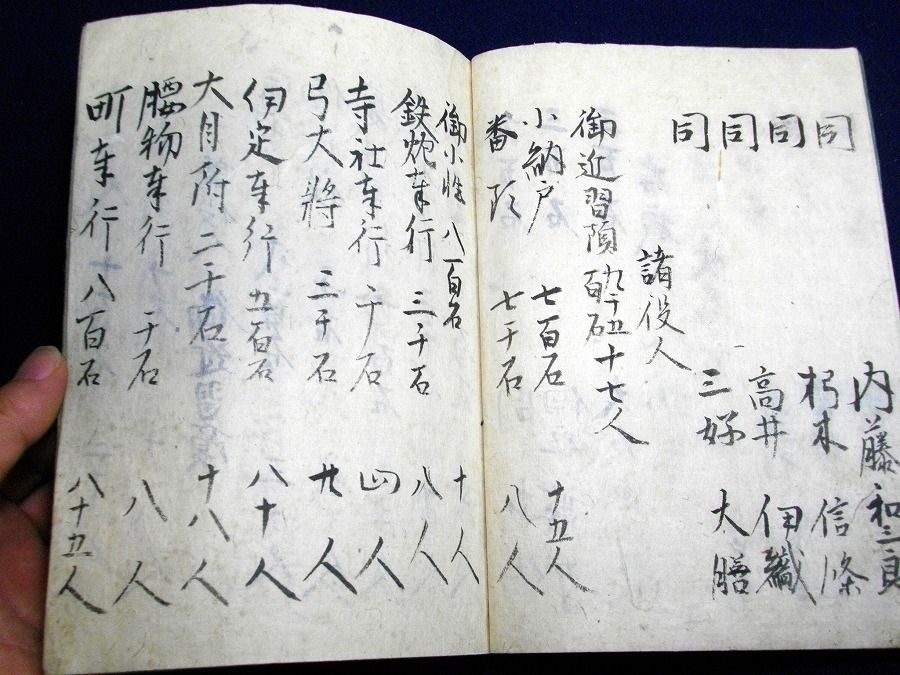 同 内藤和三良
同 朽木信條
同 高井伊織
同 三好大膳
諸役人
御近習頭 石 十七人
小納戸 七百石 十五人
番頭 七千石 八人
御小性 八百石 十人
鉄炮奉行 三千石 八人
寺社奉行 千石 四人
弓大将 三千石 廿人
伊定奉行 五百石 八十人
大目附 二千石 十八人
腰物奉行 千石 八人
町奉行 八百石 八十五人